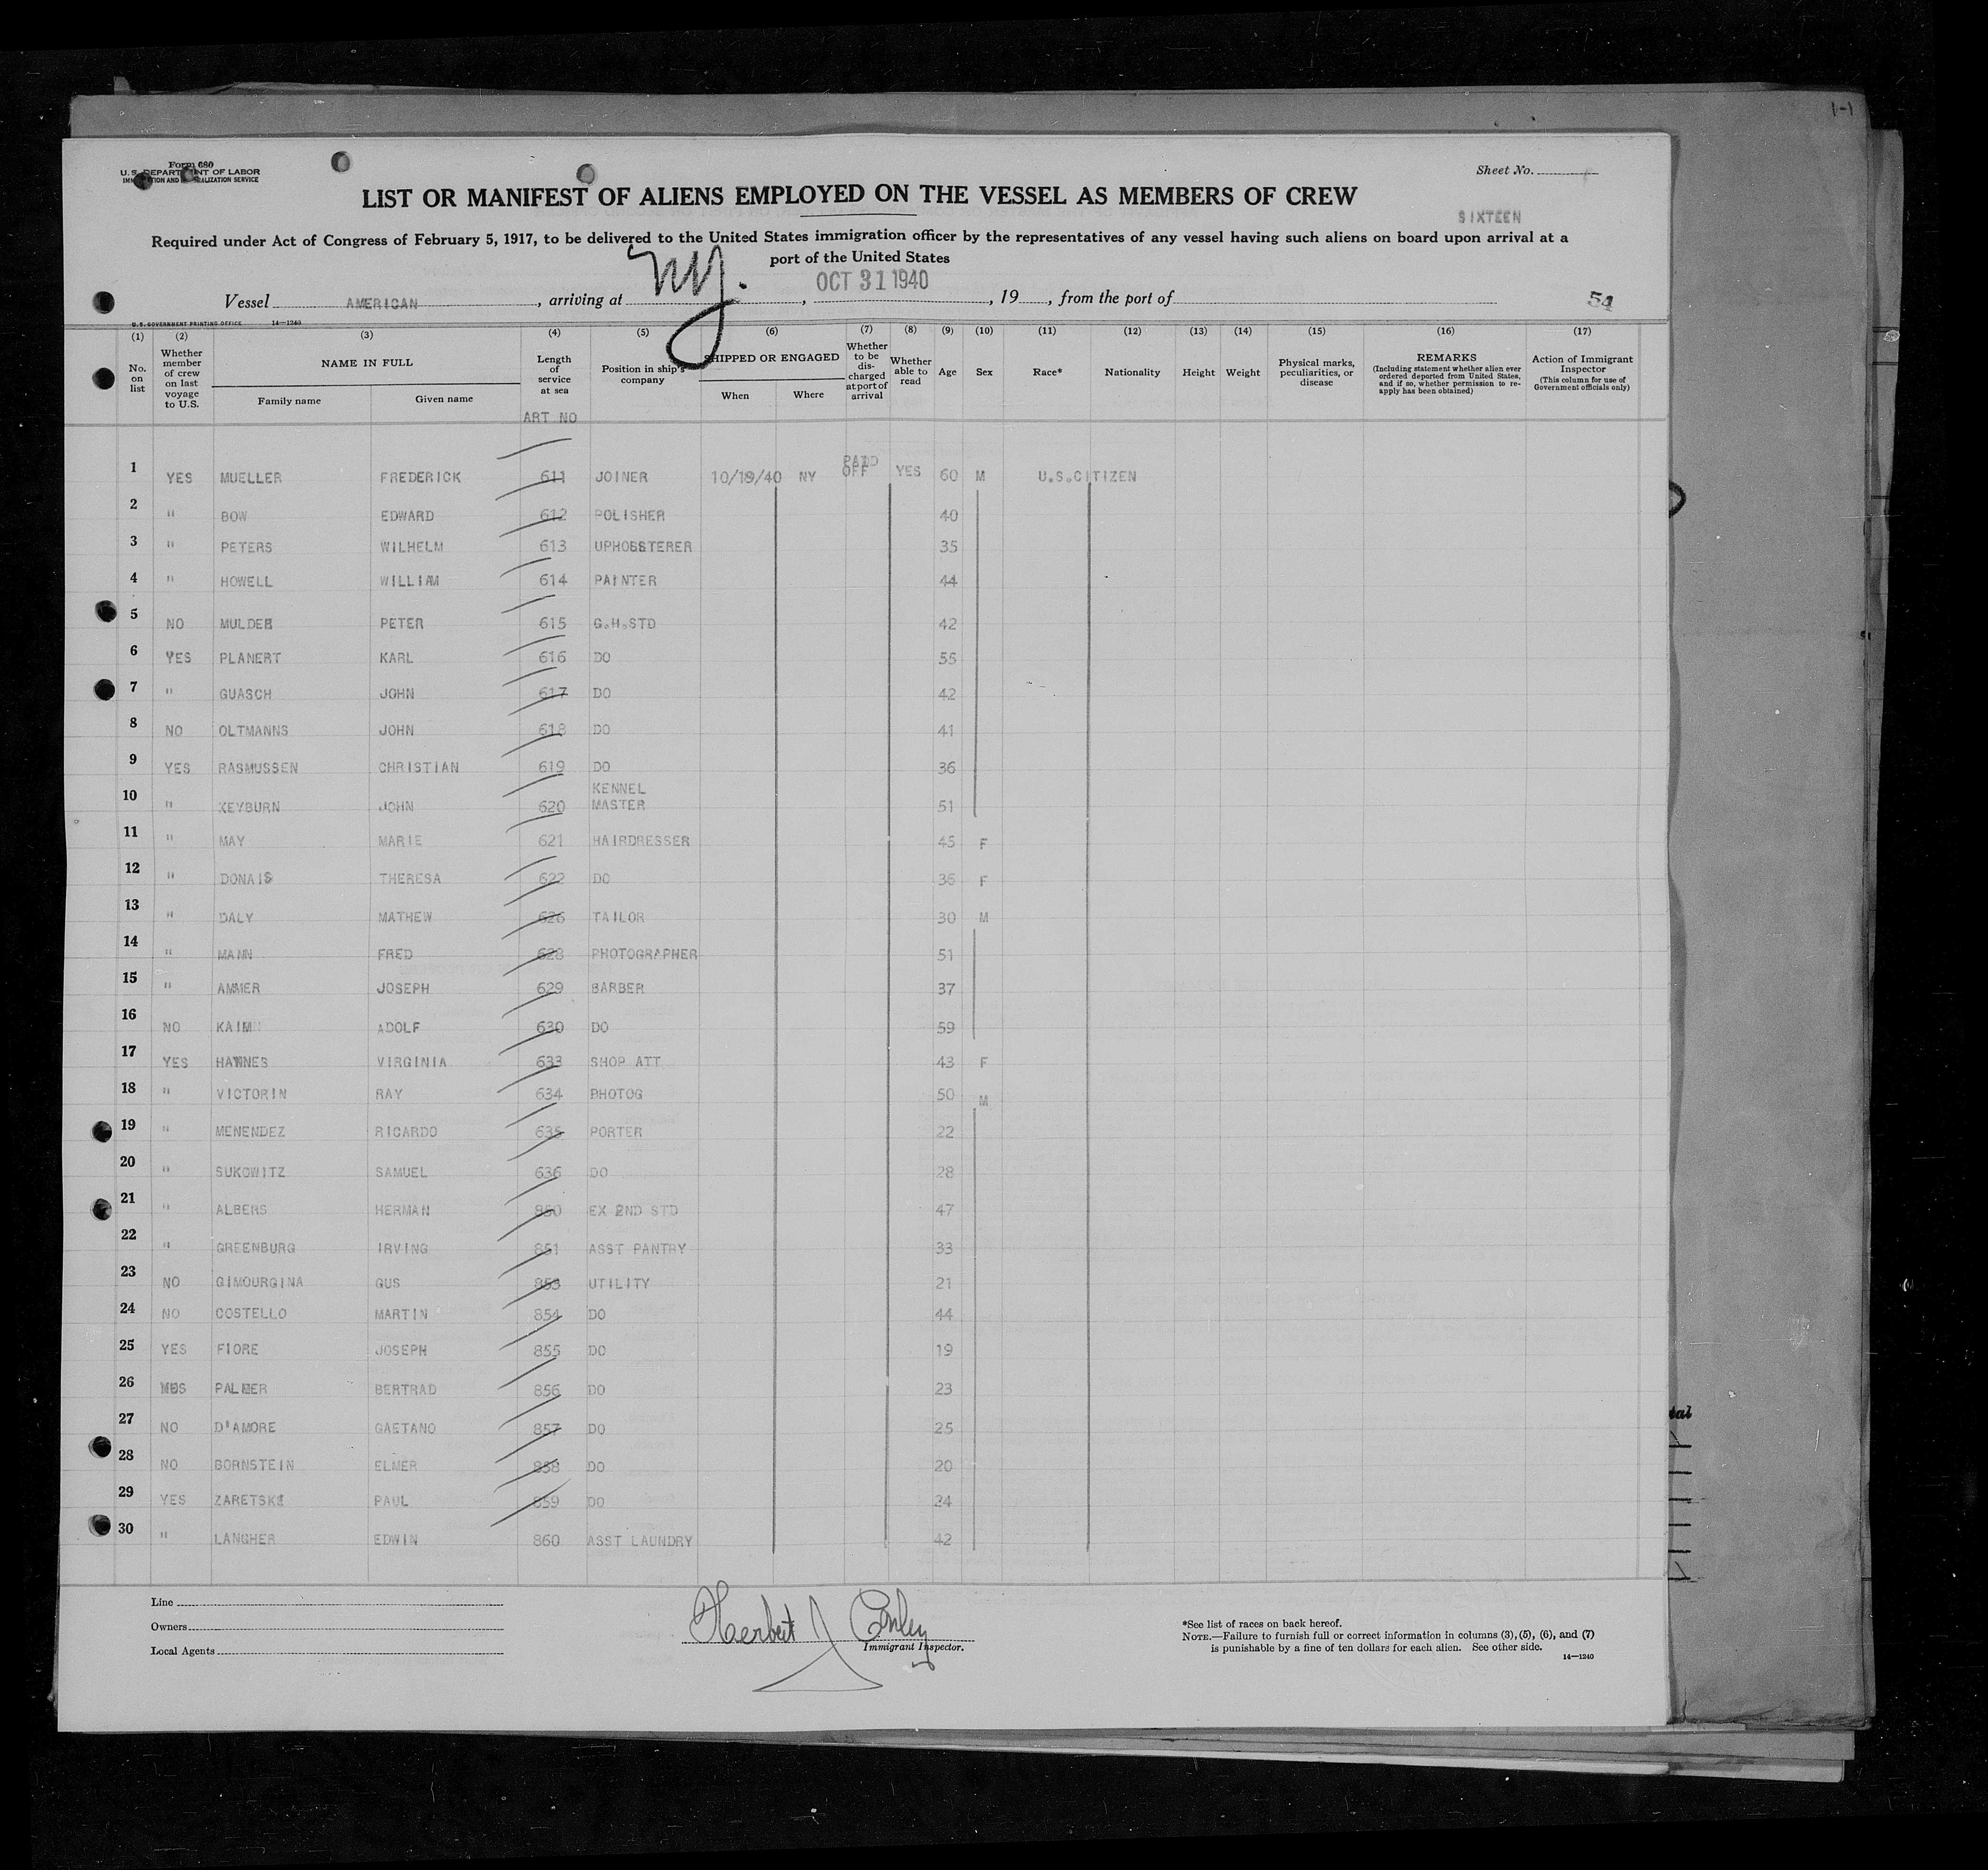 Form 680
U. S. DEPARTMENT OF LABOR
IMMIGRATION AND NATURALIZATION SERVICE
Sheet No.
LIST OR MANIFEST OF ALIENS EMPLOYED ON THE VESSEL AS MEMBERS OF CREW
SIXTEEN
Required under Act of Congress of February 5, 1917, to be delivered to the United States immigration officer by the representatives of any vessel having such aliens on board upon arrival at a
port of the United States
Vessel AMERICAN, arriving at NY., OCT 31 1940, 19, from the port of
54
U. S. GOVERNMENT PRINTING OFFICE 14—1240
(1) (2) (3) (4) (5) (6) (7) (8) (9) (10) (11) (12) (13) (14) (15) (16) (17)
No. on list
Whether member of crew on last voyage to U.S.
NAME IN FULL
Family name Given name
Length of service at sea
ART NO
Position in ship's company
SHIPPED OR ENGAGED
When Where
Whether to be discharged at port of arrival
Whether able to read
Age
Sex
Race*
Nationality
Height
Weight
Physical marks, peculiarities, or disease
REMARKS
(Including statement whether alien ever ordered deported from United States, and if so, whether permission to re-apply has been obtained)
Action of Immigrant Inspector
(This column for use of Government officials only)
1 YES MUELLER FREDERICK 611 JOINER 10/19/40 NY PAID OFF YES 60 M U.S.CITIZEN
2 " BOW EDWARD 612 POLISHER 40
3 " PETERS WILHELM 613 UPHOLSTERER 35
4 " HOWELL WILLIAM 614 PAINTER 44
5 NO MULDER PETER 615 G.H.STD 42
6 YES PLANERT KARL 616 DO 55
7 " GUASCH JOHN 617 DO 42
8 NO OLTMANNS JOHN 618 DO 41
9 YES RASMUSSEN CHRISTIAN 619 DO 36
10 " KEYBURN JOHN 620 KENNEL MASTER 51
11 " MAY MARIE 621 HAIRDRESSER 45 F
12 " DONAIS THERESA 622 DO 36 F
13 " DALY MATHEW 626 TAILOR 30 M
14 " MANN FRED 628 PHOTOGRAPHER 51
15 " AMMER JOSEPH 629 BARBER 37
16 NO KAIM ADOLF 630 DO 59
17 YES HAYNES VIRGINIA 633 SHOP ATT 43 F
18 " VICTORIN RAY 634 PHOTOG 50 M
19 " MENENDEZ RICARDO 635 PORTER 22
20 " SUKOWITZ SAMUEL 636 DO 28
21 " ALBERS HERMAN 850 EX 2ND STD 47
22 " GREENBURG IRVING 851 ASST PANTRY 33
23 NO GIMOURGINA GUS 853 UTILITY 21
24 NO COSTELLO MARTIN 854 DO 44
25 YES FIORE JOSEPH 855 DO 19
26 YES PALMER BERTRAD 856 DO 23
27 NO D'AMORE GAETANO 857 DO 25
28 NO BORNSTEIN ELMER 858 DO 20
29 YES ZARETSKI PAUL 859 DO 24
30 " LANGHER EDWIN 860 ASST LAUNDRY 42
Line
Owners
Local Agents
Herbert J Conley
Immigrant Inspector.
*See list of races on back hereof.
NOTE.—Failure to furnish full or correct information in columns (3), (5), (6), and (7)
is punishable by a fine of ten dollars for each alien. See other side.
14—1240